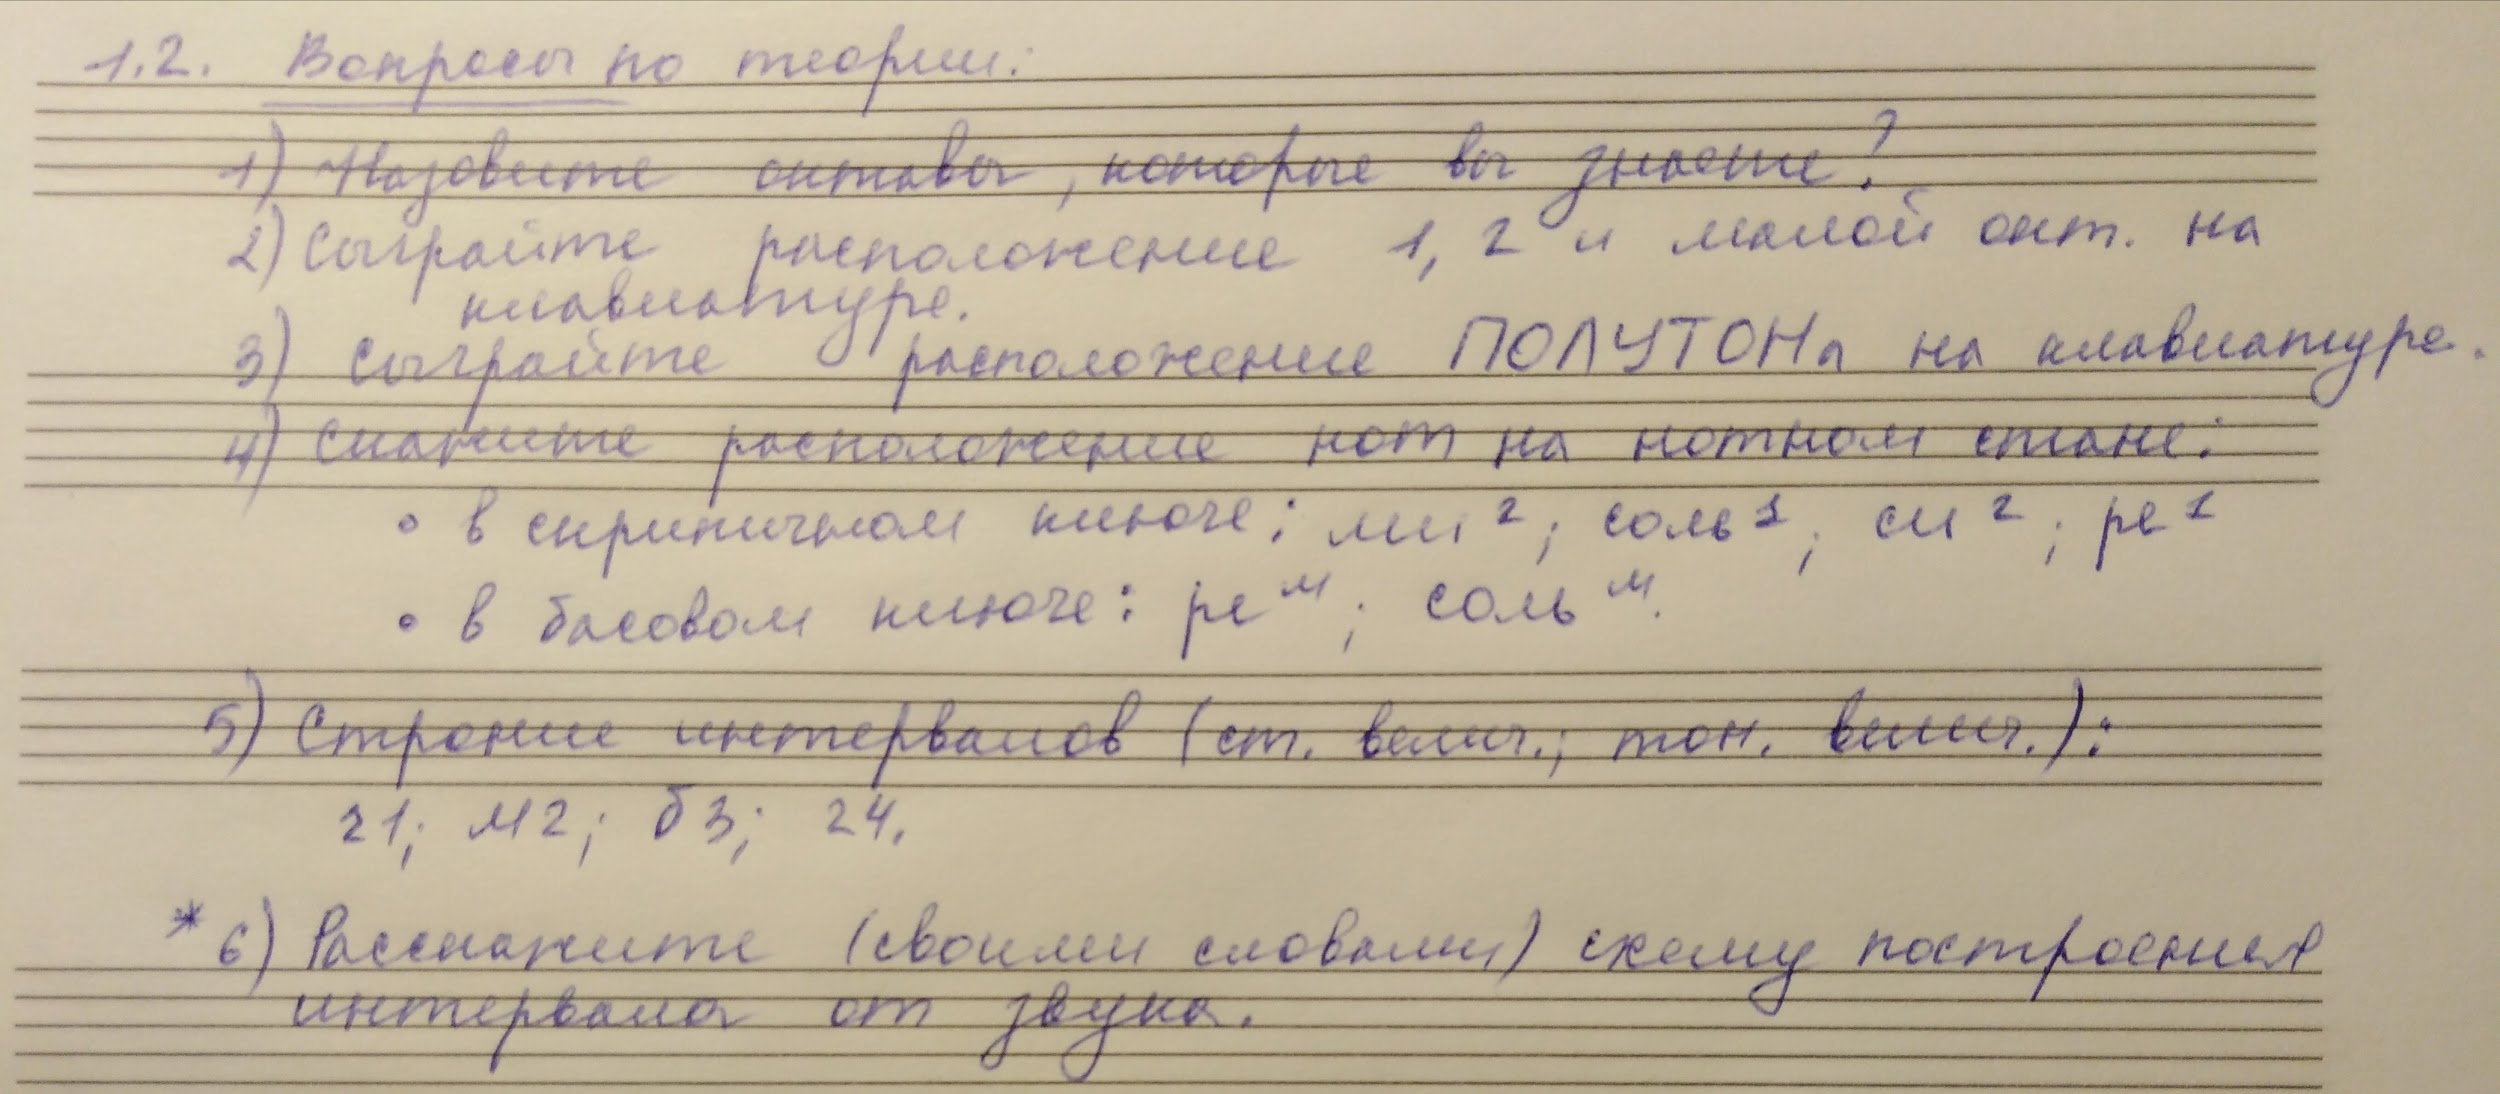 1.2. Вопросы по теории:
1) Назовите октавы, которые вы знаете?
2) Сыграйте расположение 1, 2 и малой окт. на
клавиатуре.
3) Сыграйте расположение ПОЛУТОНа на клавиатуре.
4) Скажите расположение нот на нотном стане:
• в скрипичном ключе: ми²; соль¹; си²; ре¹
• в басовом ключе: ре ᴹ; соль ᴹ.
5) Строние интервалов (ст. велич.; тон. велич.):
ч1; м2; б3; ч4.
* 6) Расскажите (своими словами) схему построения
интервала от звука.